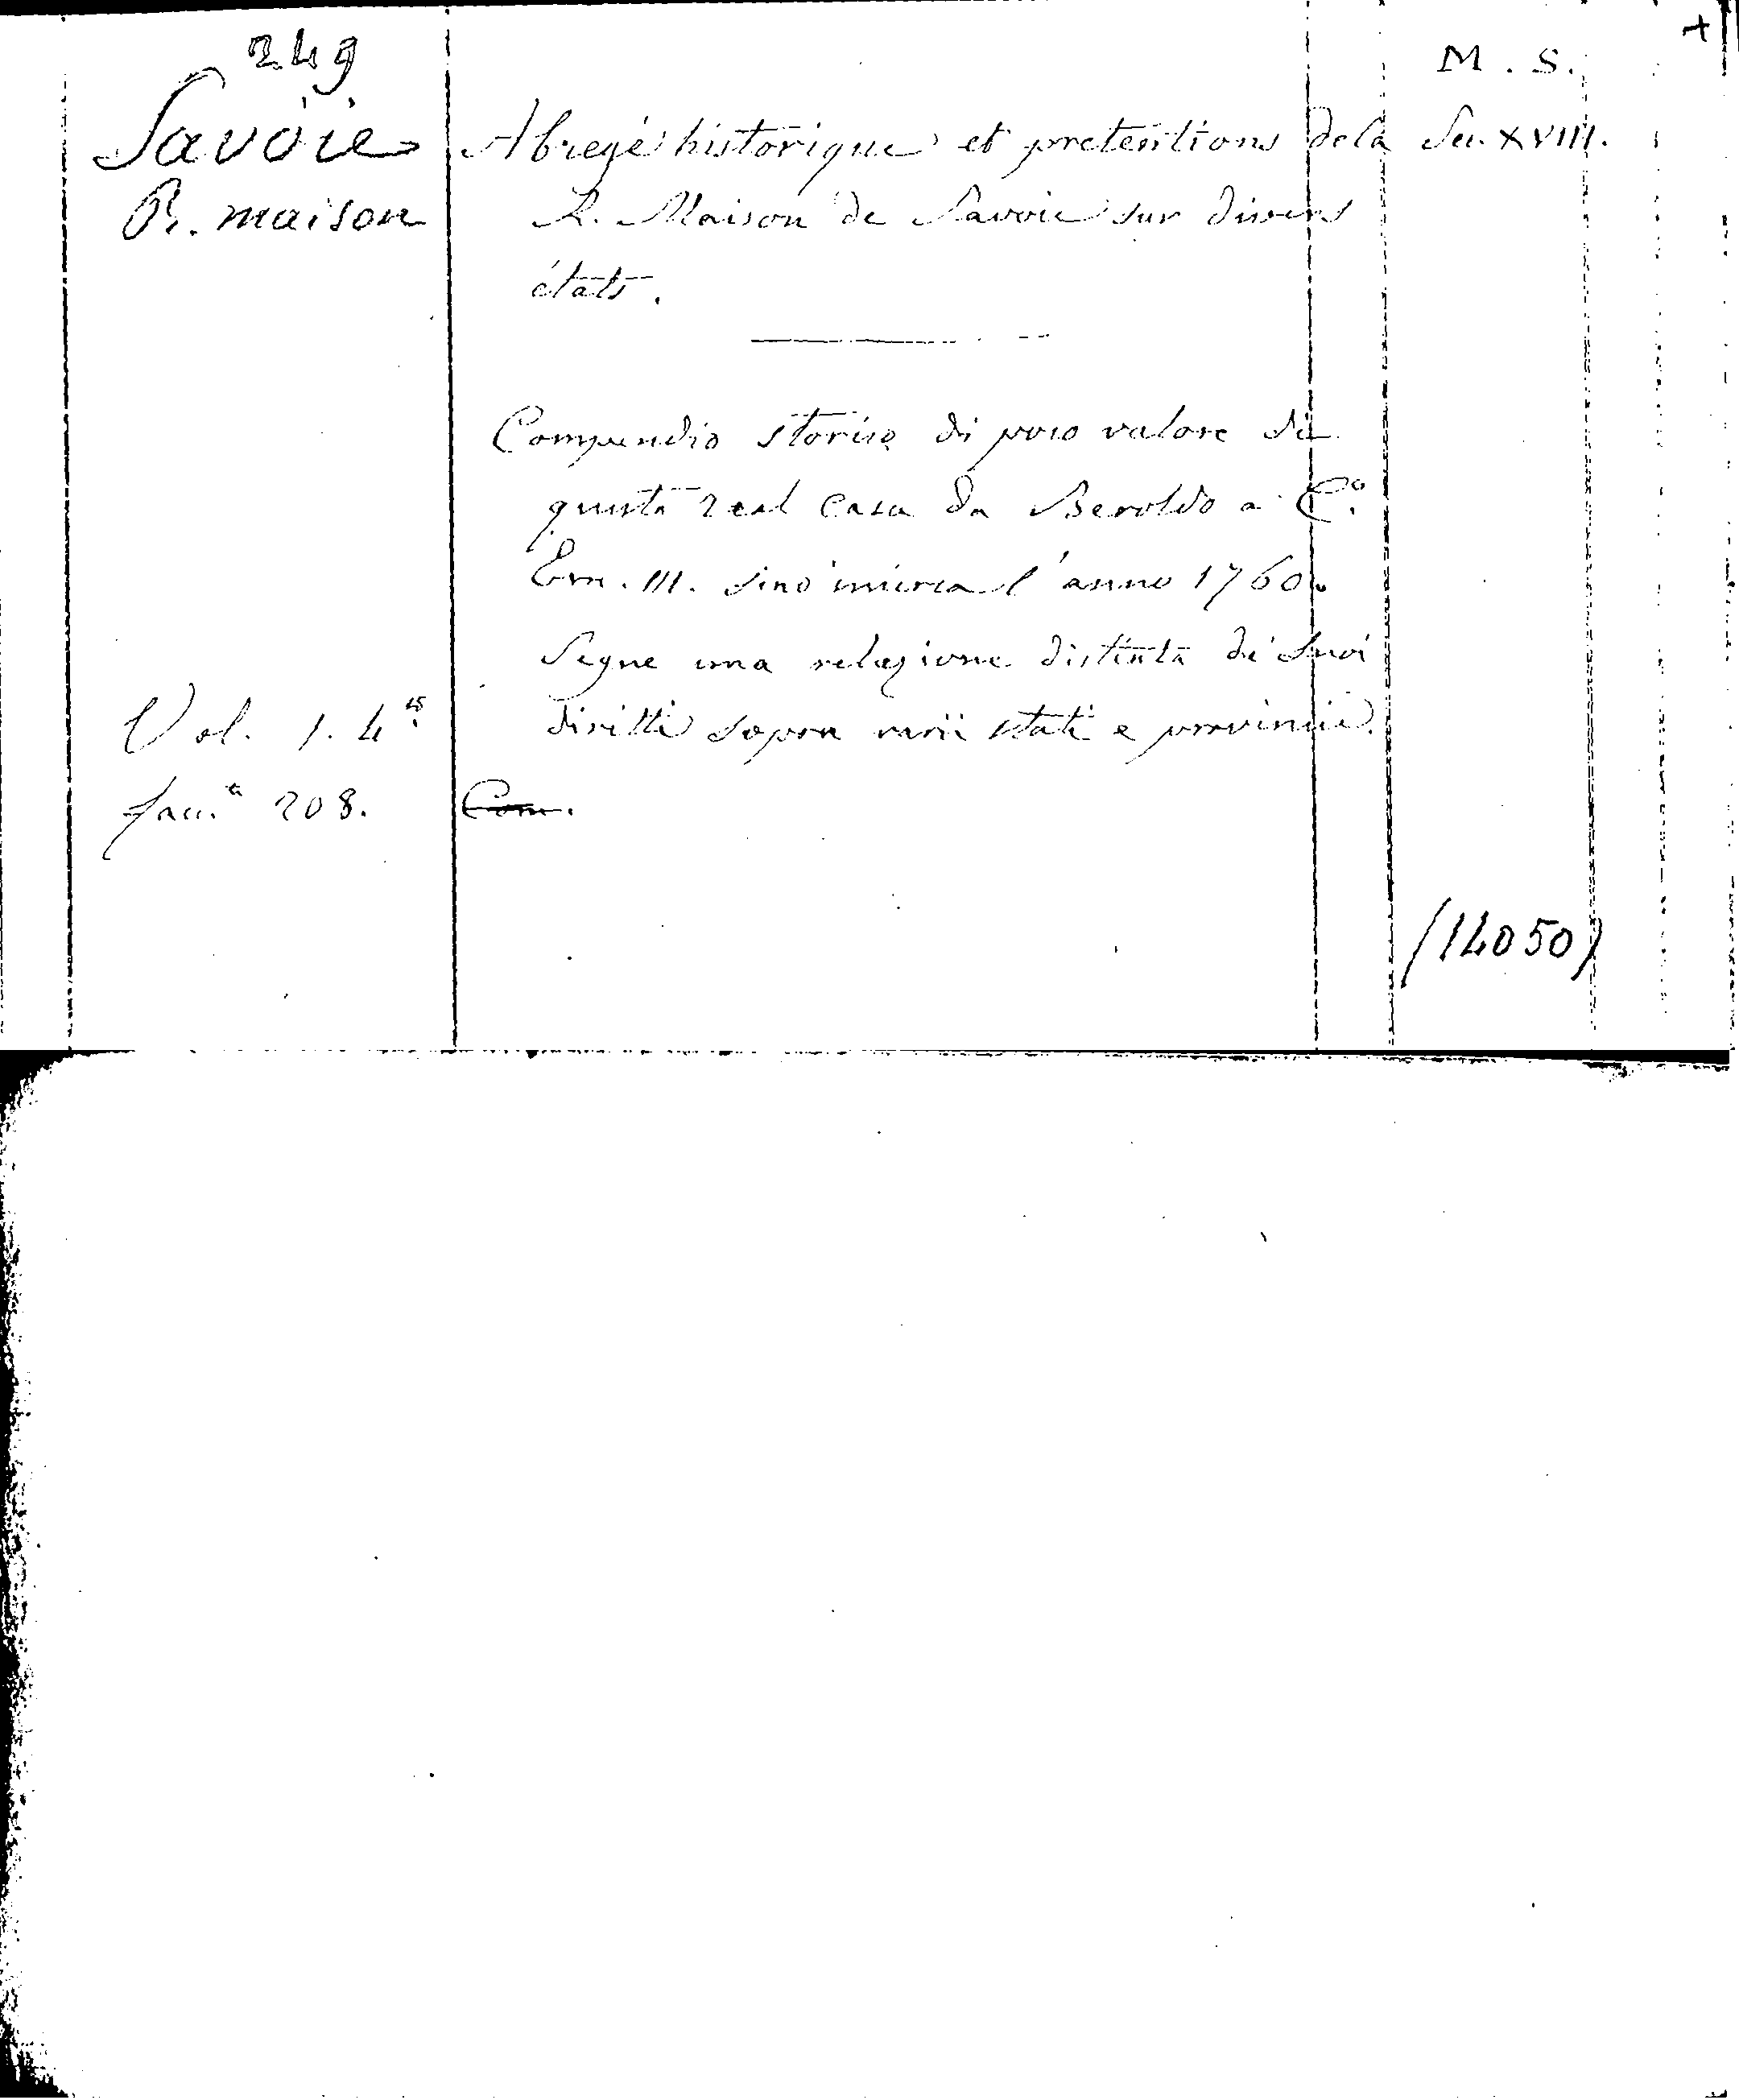 249
M. S.
Savoie
R. maison
Abregé historique et pretentions de la
Sec. XVIII.
R. Maison de Savoie sur divers
états.
Compendio storico di poco valore di
questa real casa da Beroldo a C.º
Em. III. sino incirca l'anno 1760.
Segue una relazione distinta di suoi
diritti sopra varii stati e provincie.
Vol. 1. 4º
facc.ª 208.
Com.
(14050)